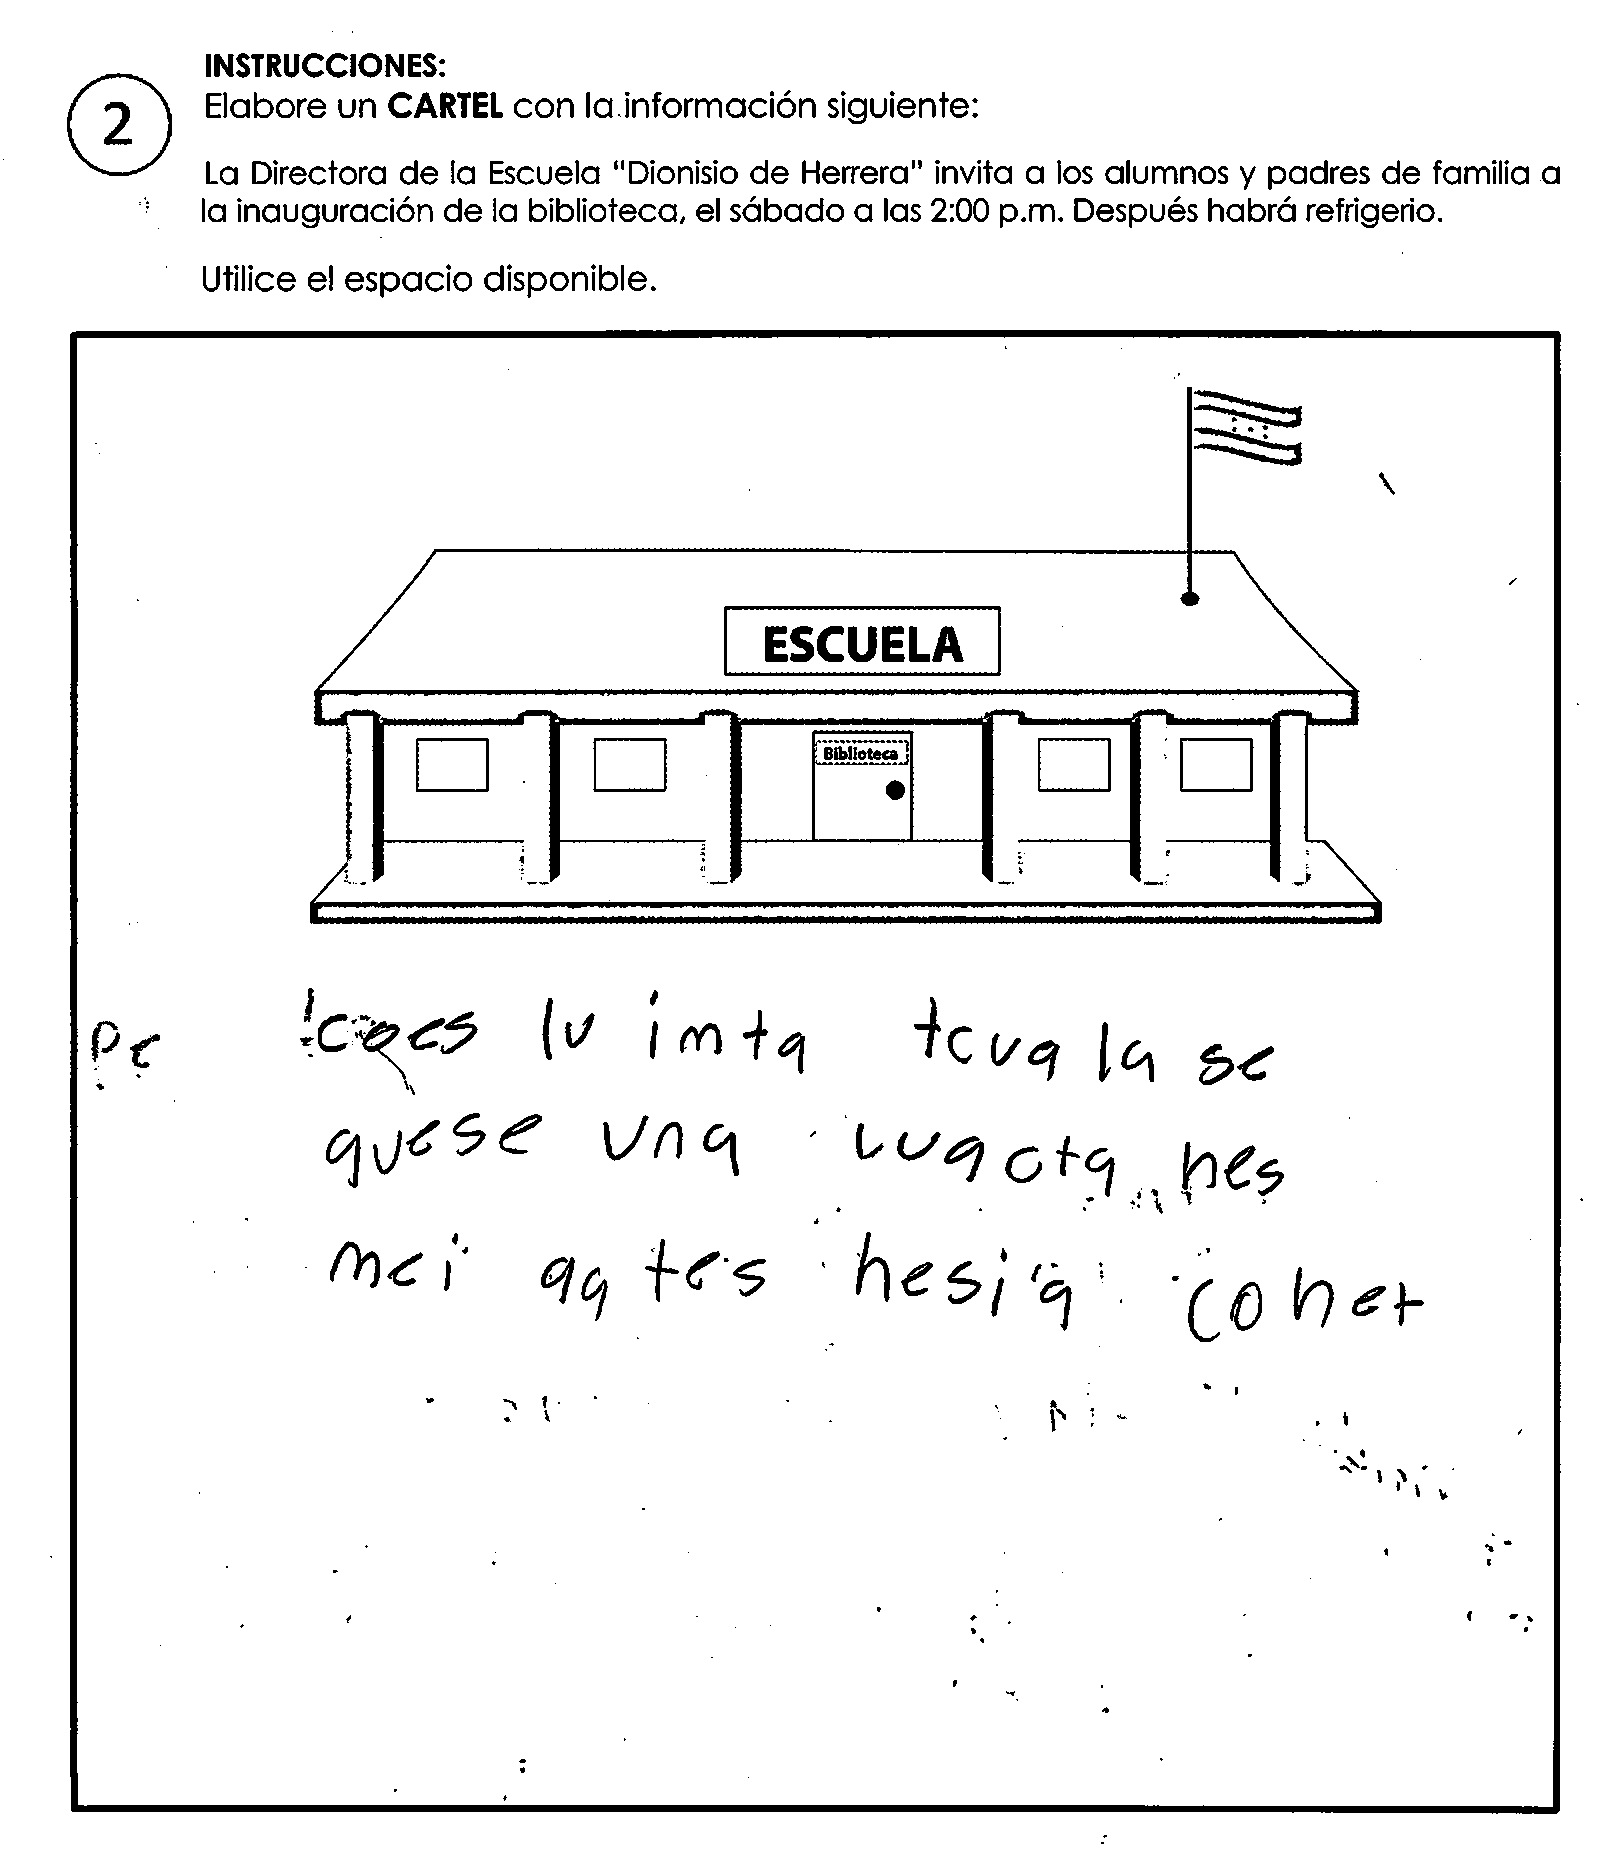 INSTRUCCIONES:
2
Elabore un CARTEL con la información siguiente:
La Directora de la Escuela "Dionisio de Herrera" invita a los alumnos y padres de familia a
la inauguración de la biblioteca, el sábado a las 2:00 p.m. Después habrá refrigerio.
Utilice el espacio disponible.
ESCUELA
Biblioteca
pe lv imta tcva la se
quese vna hes
mei tes hesia cohet